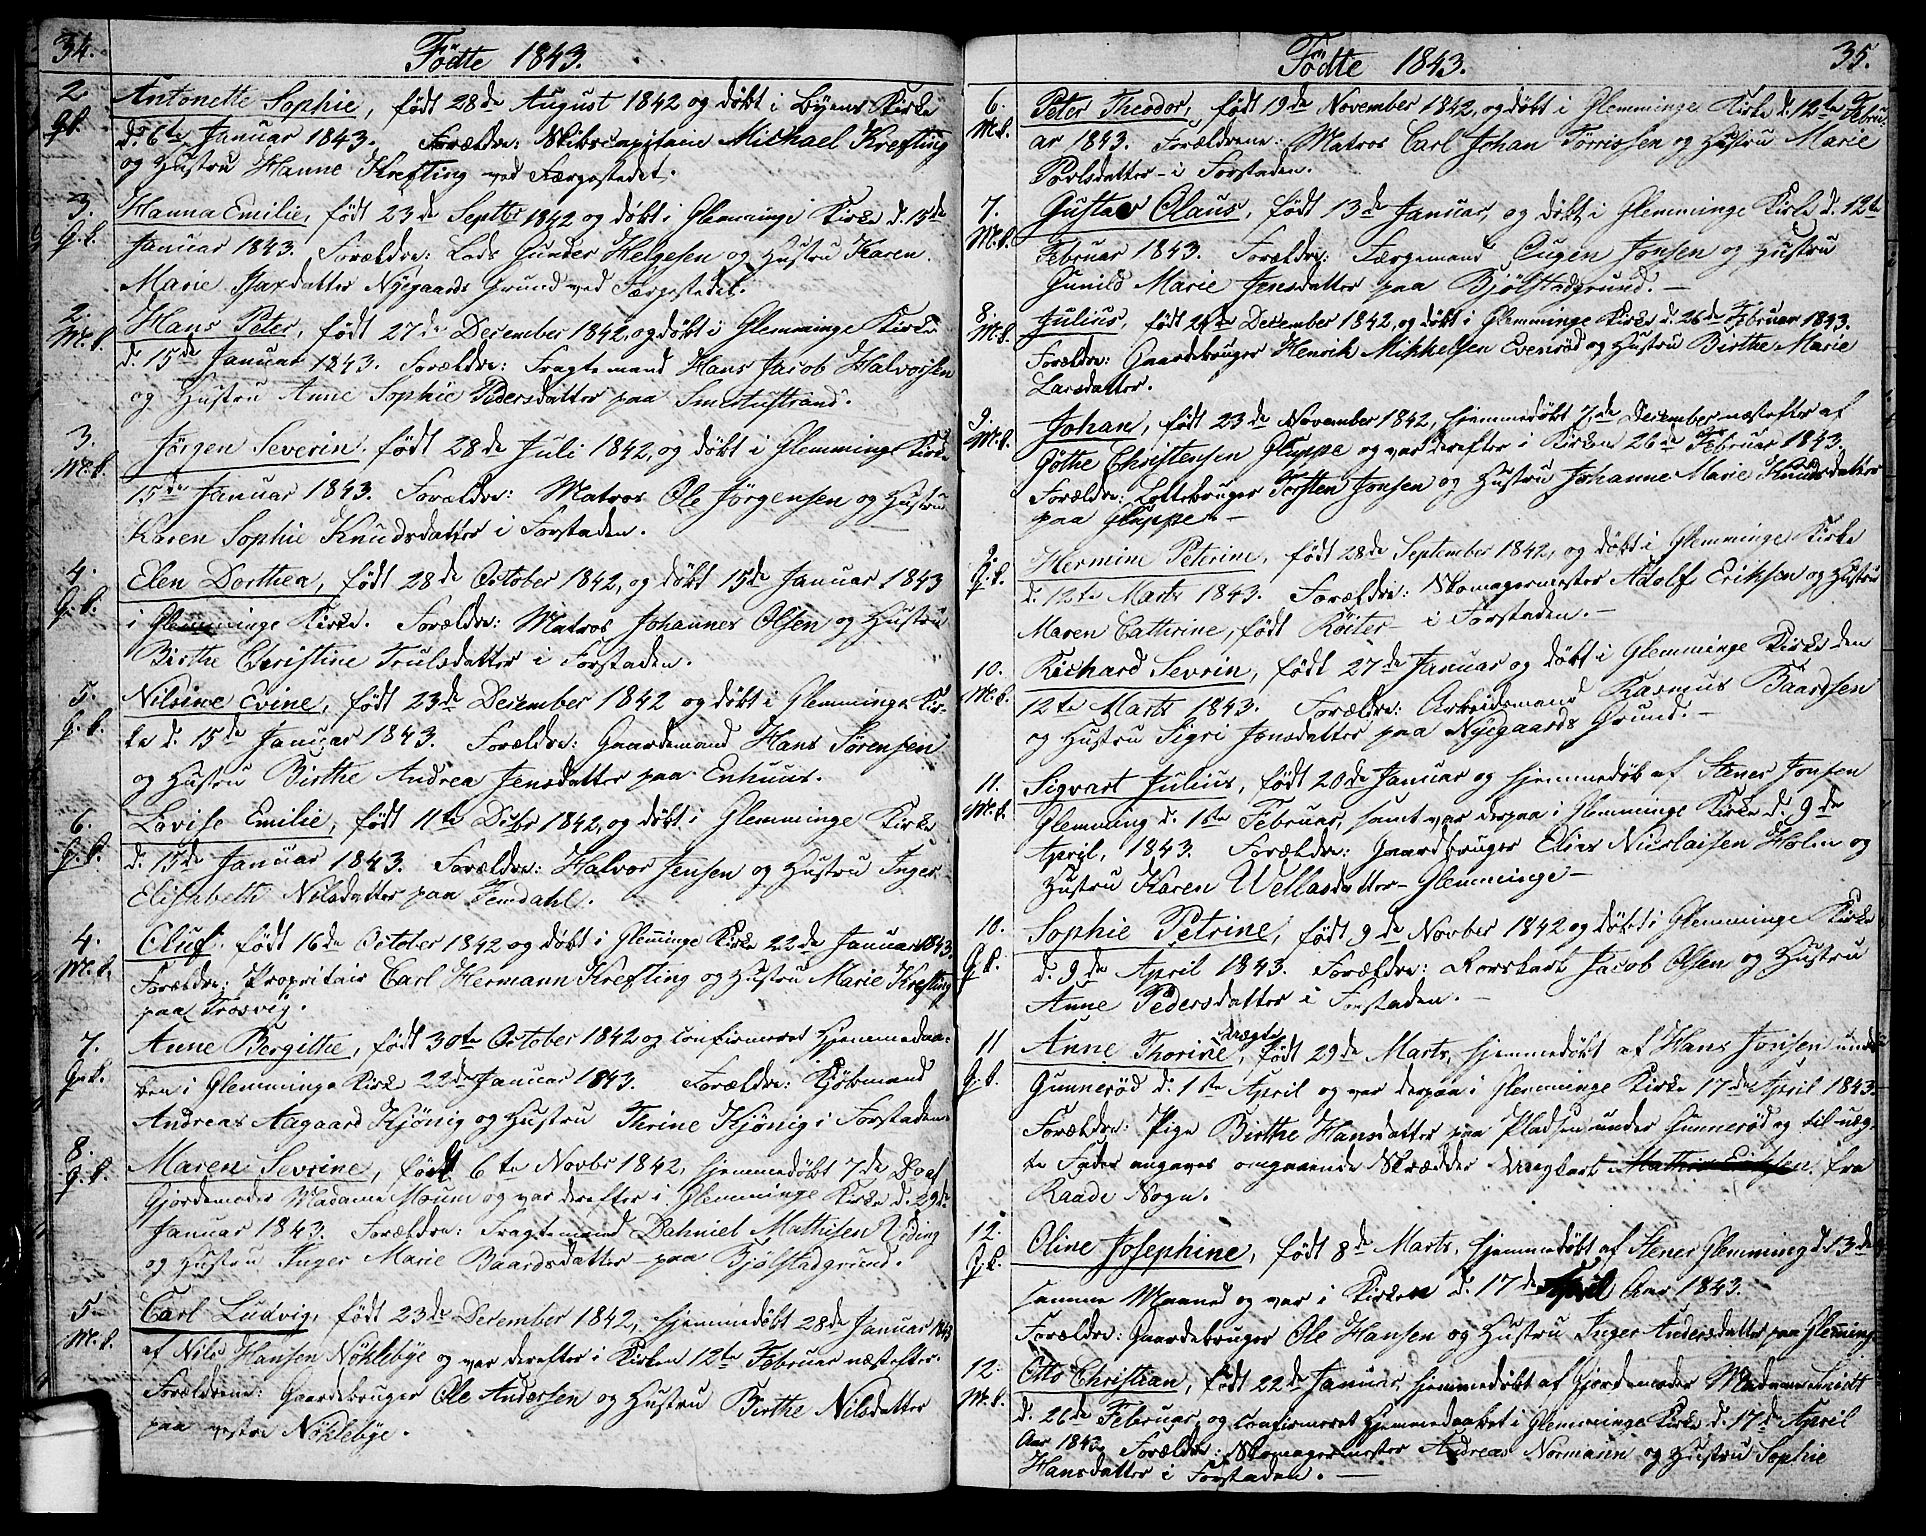 34.
Födte 1843.
2. Antonette Sophie, født 28de August 1842 og døbt i Byens Kirke
P.B. d. 6te Januar 1843. Forældre: Skibscapitain Michael Krefting
og Hustru Hanne Krefting ved Færgestedet.
3. Hanna Emilie, født 23de Septbr 1842 og døbt i Glemminge Kirke d. 15de
P.B. Januar 1843. Forældre: Lods Gunder Helgesen og Hustru Karen
Marie Isaxdatter Nygaards Grund ved Færgestedet.
2. Hans Peter, født 27de December 1842, og døbt i Glemminge Kirke
M.B. d. 15de Januar 1843. Forældre: Fragtemand Hans Jacob Halvorsen
og Hustru Anne Sophie Pedersdatter paa Smertustrand.
3. Jørgen Severin, født 28de Juli 1842, og døbt i Glemminge Kirke
M.B. 15de Januar 1843. Forældre: Matros Ole Jørgensen og Hustru
Karen Sophie Knudsdatter i Forstaden.
4. Elen Dorthea, født 28de October 1842, og døbt 15de Januar 1843
P.B. i Glemminge Kirke. Forældre: Matros Johannes Olsen og Hustru
Birthe Christine Trulsdatter i Forstaden.
5. Nilsine Evine, født 23de December 1842 og døbt i Glemminge Kir-
P.B. ke d. 15de Januar 1843. Forældre: Gaardemand Hans Sørensen
og Hustru Birthe Andrea Jensdatter paa Enhuus.
6. Lovise Emilie, født 11te Decbr 1842, og døbt i Glemminge Kirke
P.B. d. 15de Januar 1843. Forældre: Halvor Jensen og Hustru Inger
Elisabeth Nilsdatter paa Femdahl.
4. Oluf, født 16de October 1842 og døbt i Gleminge Kirke 22de Januar 1843
M.B. Forældre: Propritair Carl Hermann Krefting og Hustru Marie Krefting
paa Trosvig.
7. Anne Bergithe, født 30te October 1842 og confirmeret Hjemmedaa-
P.B. ben i Glemminge Kirke 22de Januar 1843. Forældre: Kjøbmand
Andreas Aagaard Kjønig og Hustru Thrine Kjønig i Forstaden
8. Maren Sevrine, født 6te Novbr 1842, hjemmedøbt 7de D. af
P.B. Gjordemoder Madame Moum og var derefter i Glemminge Kirke d. 29de
Januar 1843. Forældre: Fragtemand Dahniel Mathisen Viding
og Hustru Inger Marie Baardsdatter paa Bjølstadgrund.
5. Carl Ludvig, født 23de December 1842, hjemmedøbt 28de Januar 1843
M.B. af Nils Hansen Nöklebye og var derefter i Kirken 12te Februar næstefter.
Forældrene: Gaardebruger Ole Andersen og Hustru Birthe Nilsdatter
paa vestre Nöklebye.
Födte 1843. 35.
6. Peter Theodor, født 19de November 1842, og døbt i Glemminge Kirke d. 12te Febru-
M.B. ar 1843. Forældrene: Matros Carl Johan Törrissen og Hustru Marie
Povlsdatter i Forstaden.
7. Gustav Claus, født 13de Januar, og døbt i Glemminge Kirke d. 12te
M.B. Februar 1843. Forældre: Færgemand Eugen Jonsen og Hustru
Gunild Marie Jensdatter paa Bjølstadgrund. -
8. Julius, født 24de December 1842, og døbt i Glemminge Kirke d. 26de Februar 1843.
M.B. Forældre: Gaardebruger Henrik Mikkelsen Evenröd og Hustru Birthe Marie
Larsdatter.
9. Johan, født 23de November 1842, hjemmedøbt 7de December næstefter af
M.B. Göthe Christensen Gluppe og var derefter i Kirke 26de Februar 1843.
Forældre: Lottebruger Torsten Jonsen og Hustru Johanne Marie Knudsdatter
paa Gluppe. -
9. Hermine Petrine, født 28de September 1842, og døbt i Glemminge Kirke
P.B. d. 12te Marts 1843. Forældre: Skomagermester Adolf Eriksen og Hustru
Maren Cathrine, født Röiter i Forstaden. -
10. Richard Sevrin, født 27de Januar og døbt i Glemminge Kirke den
M.B. 12te Marts 1843. Forældre: Arbeidsmand Rasmus Baardsen
og Hustru Sigri Jonsdatter paa Nyegaards Grund. -
11. Sigvart Julius, født 20de Januar og hjemmedøb af Stener Jonsen
M.B. Glemming d. 1ste Februar, samt var derpaa i Glemminge Kirke d. 9de
April, 1843. Forældre: Gaardbruger Elias Nicolaisen Holen og
Hustru Karen Wellasdatter - Glemminge -
10. Sophie Petrine, født 9de Novber 1842 og døbt i Glemminge Kirke
P.B. d. 9de April 1843. Forældre: Jacob Olsen og Hustru
Anne Pedersdatter i Forstaden. -
uægte
11 Anne Thorine, født 29de Marts, hjemmedøbt af Hans Jonsen under
P.B. Gunneröd d. 1ste April og var derpaa i Glemminge Kirke 17de April 1843.
Forældre: Pige Birthe Hansdatter paa Pladsen under Gunneröd og til uæg-
te Fader angaves omgaaende Skrædder fra
Raade Sogn.
12. Oline Josephine, født 8de Marts, hjemmedøbt af Stener Glemming d. 13de
P.B. samme Maaned og var i Kirken d. 17de April Aar 1843.
Forældre: Gaardebruger Ole Hansen og Hustru Inger Andersdatter paa Glemming
12. Otto Christian, født 22de Januar, hjemmedøbt af Gjordemoder Madame Smidt
M.B. d. 26de Februar og confirmeret Hjemmedaaben i Glemminge Kirke d. 17de April
Aar 1843. Forældre: Skomagermester Andreas Normann og Hustru Sophie
Hansdatter i Forstaden. -